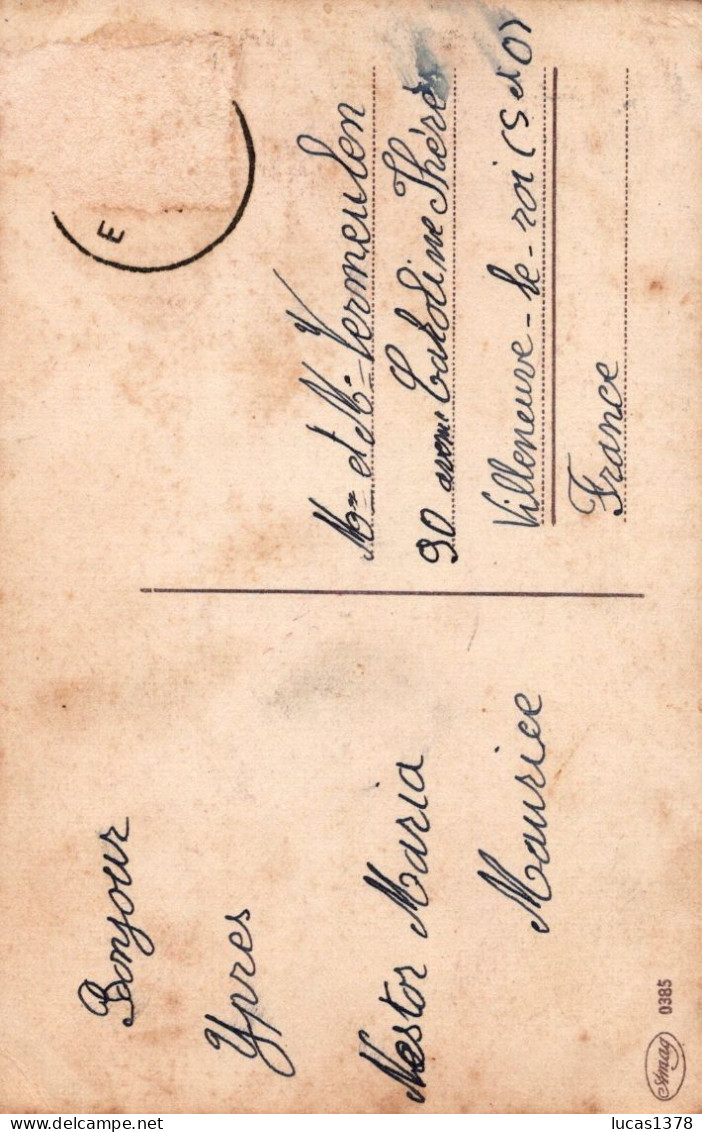 Bonjour
Ypres
Nestor Maria
Maurice
Mr et Me Vermeulen
90 avenue Caroline Thérèse
Villeneuve-le-roi (S et O)
France
E
Amag 0385
lucas1378